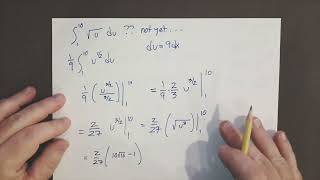 ∫₁¹⁰ √u du ?? not yet...
du = 9dx
1/9 ∫₁¹⁰ u^(1/2) du
1/9 ( u^(3/2) / (3/2) ) |₁¹⁰ = 1/9 · 2/3 u^(3/2) |₁¹⁰
= 2/27 u^(3/2) |₁¹⁰ = 2/27 ( √u³ ) |₁¹⁰
= 2/27 ( 10√10 - 1 )